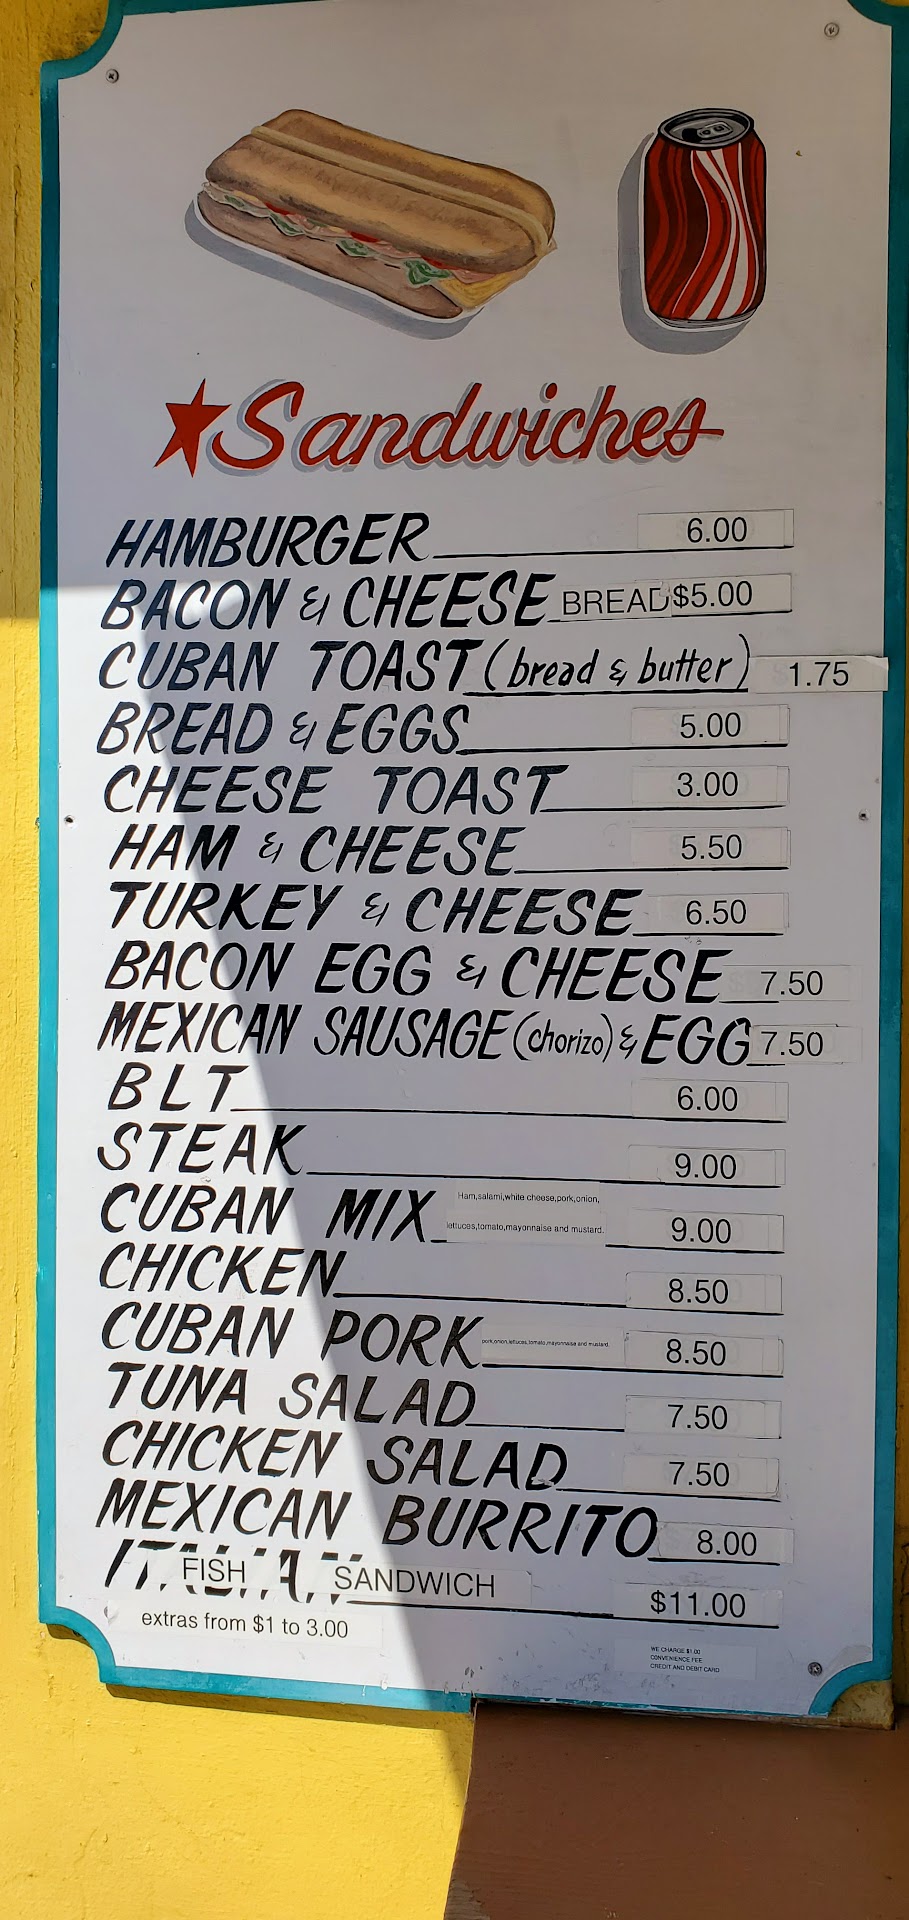 Sandwiches
HAMBURGER 6.00
BACON & CHEESE BREAD $5.00
CUBAN TOAST (bread & butter) 1.75
BREAD & EGGS 5.00
CHEESE TOAST 3.00
HAM & CHEESE 5.50
TURKEY & CHEESE 6.50
BACON EGG & CHEESE 7.50
MEXICAN SAUSAGE (chorizo) & EGG 7.50
BLT 6.00
STEAK 9.00
CUBAN MIX Ham,salami,white cheese,pork,onion, lettuces,tomato,mayonnaise and mustard. 9.00
CHICKEN 8.50
CUBAN PORK pork,onion,lettuces,tomato,mayonnaise and mustard. 8.50
TUNA SALAD 7.50
CHICKEN SALAD 7.50
MEXICAN BURRITO 8.00
ITALIAN FISH SANDWICH $11.00
extras from $1 to 3.00
WE CHARGE $1.00
CONVENIENCE FEE
CREDIT AND DEBIT CARD